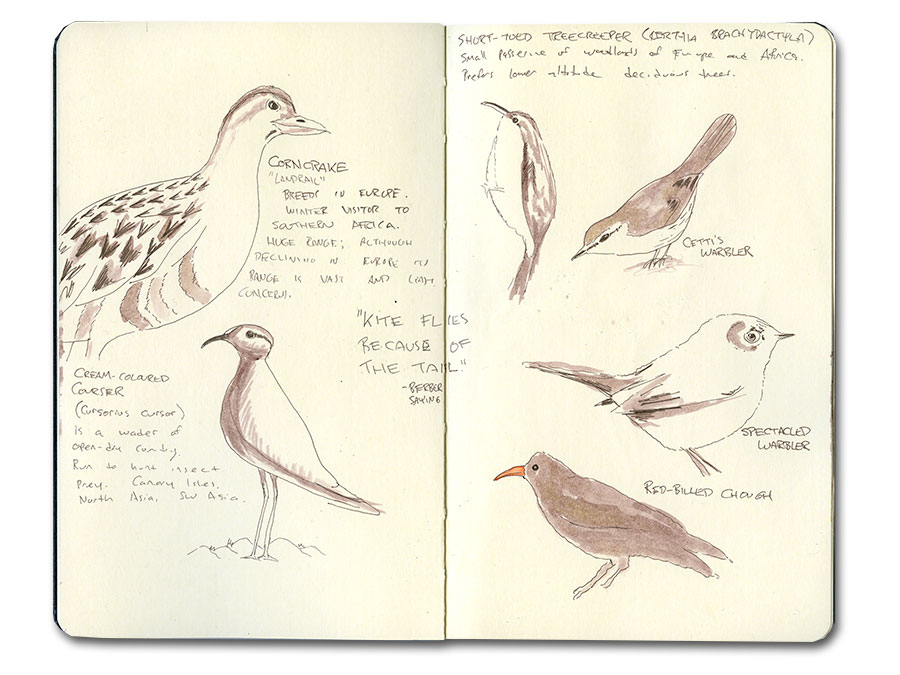 CORNCRAKE
"LANDRAIL"
BREEDS IN EUROPE.
WINTER VISITOR TO
SOUTHERN AFRICA.
HUGE RANGE; ALTHOUGH
DECLINING IN EUROPE ITS
RANGE IS VAST AND LEAST
CONCERN.
"KITE FLIES
BECAUSE OF
THE TAIL."
- BERBER
SAYING
CREAM-COLOURED
COURSER
(Cursorius cursor)
is a wader of
open-dry country.
Run to hunt insect
prey. Canary Isles,
North Asia, SW Asia.
SHORT-TOED TREECREEPER (CERTHIA BRACHYDACTYLA)
Small passerine of woodlands of Europe and Africa.
Prefers lower altitude deciduous trees.
CETTI'S
WARBLER
SPECTACLED
WARBLER
RED-BILLED CHOUGH